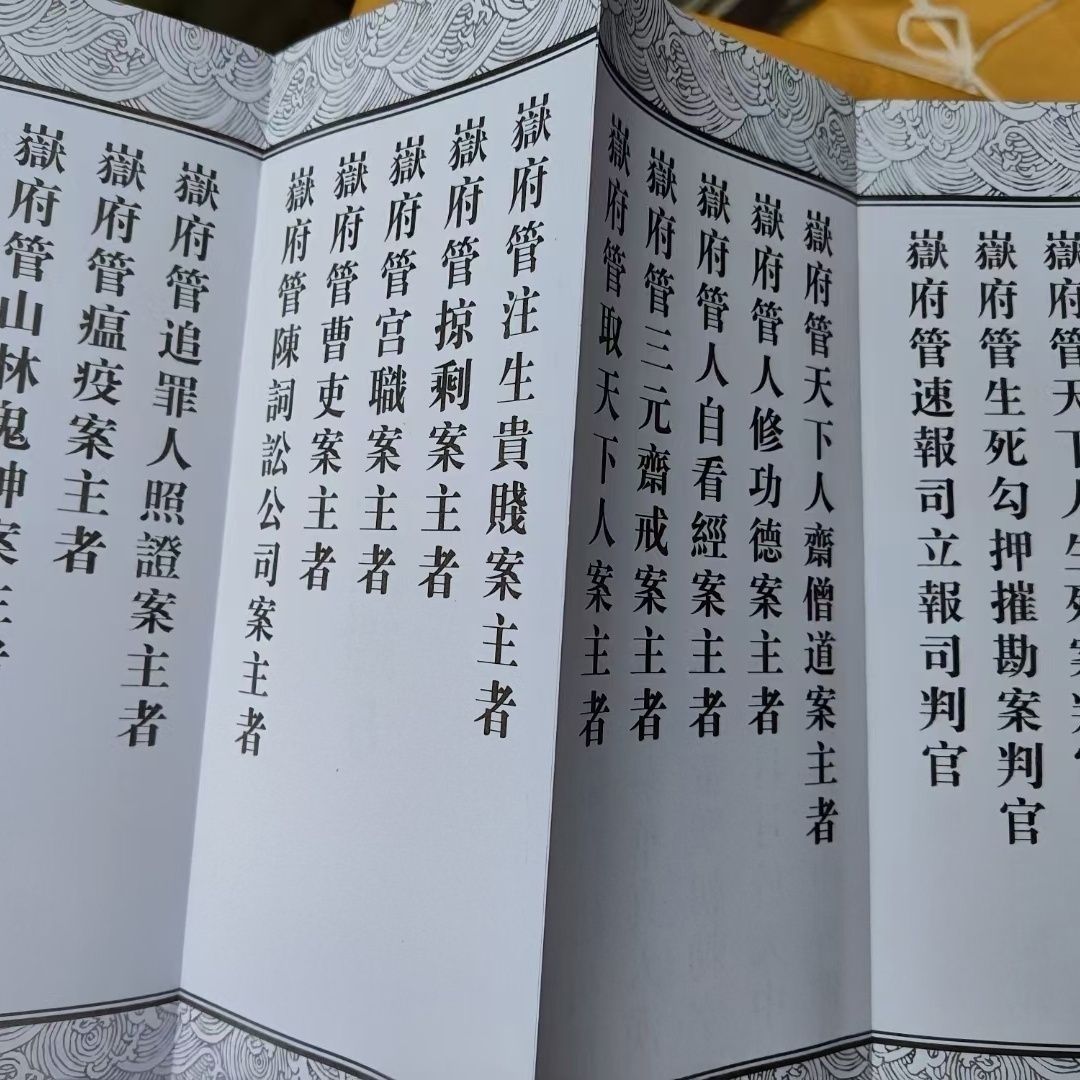 嶽府管天下人生死案判官
嶽府管生死勾押摧勘案判官
嶽府管速報司立報司判官
嶽府管天下人齋僧道案主者
嶽府管人修功德案主者
嶽府管人自看經案主者
嶽府管三元齋戒案主者
嶽府管取天下人案主者
嶽府管注生貴賤案主者
嶽府管掠剩案主者
嶽府管宮職案主者
嶽府管曹吏案主者
嶽府管陳詞訟公司案主者
嶽府管追罪人照證案主者
嶽府管瘟疫案主者
嶽府管山林鬼神案主者